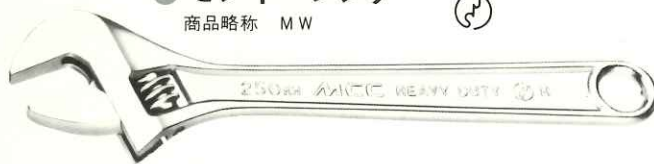 商品略称 MW
250mm MCC HEAVY DUTY H